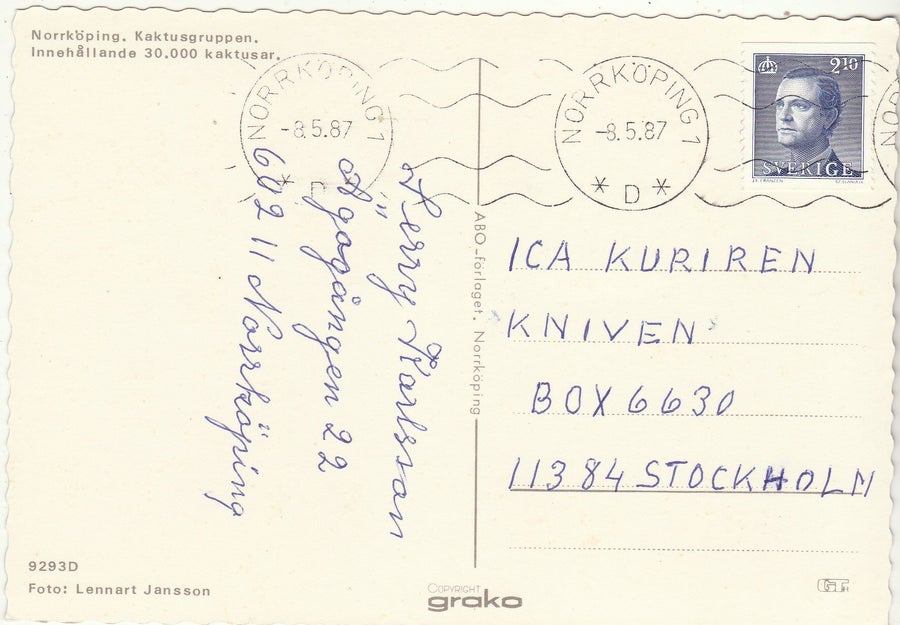 Norrköping. Kaktusgruppen.
Innehållande 30.000 kaktusar.
NORRKÖPING 1
-8.5.87
* D *
NORRKÖPING 1
-8.5.87
* D *
2 10
SVERIGE
NO
Jerry Karlsson
Agatgången 22
602 11 Norrköping
ABO-förlaget. Norrköping
ICA KURIREN
KNIVEN
BOX 6630
11384 STOCKHOLM
9293D
Foto: Lennart Jansson
COPYRIGHT
grako